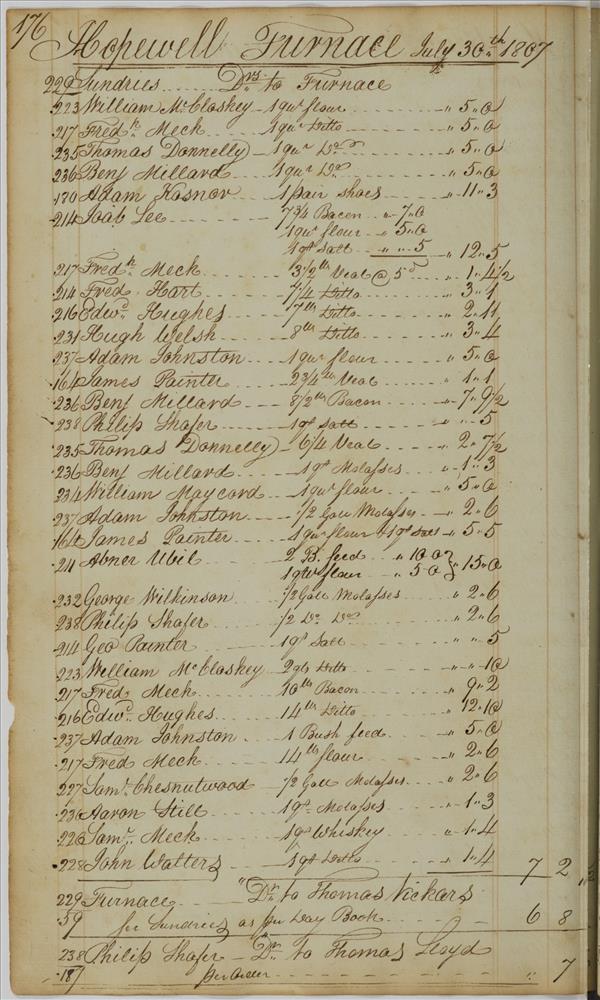 176 Hopewell Furnace July 30th 1807
229 Sundries Drs. to Furnace
223 William McCloskey 1 qur flour " 5 " 0
217 Fredk. Meck 1 qur Ditto " 5 " 0
235 Thomas Donnelly 1 qur Do " 5 " 0
236 Benj Millard 1 qur Do " 5 " 0
130 Adam Kosnor 1 pair shoes " 11 " 3
214 Joab Lee 7 3/4 Bacon " 7 " 0
1 qur flour " 5 " 0
1 qt Salt " " 5 " 12 " 5
217 Fredk. Meck 3 1/2 lb Veal @ 5d " 1 " 4 1/2
214 Fred Hart 7 1/4 Ditto " 3 " 1
216 Edwd. Hughes 7 lb Ditto " 2 " 11
231 Hugh Welsh 8 lb Ditto " 3 " 4
237 Adam Johnston 1 qur flour " 5 " 0
164 James Painter 2 3/4 lb Veal " 1 " 1
236 Benj Millard 8 1/2 lb Bacon " 7 " 9 1/2
238 Philip Shafer 1 qt Salt " " 5
235 Thomas Donnelly 6 1/4 Veal " 2 " 7 1/2
236 Benj Millard 1 qt Molasses " 1 " 3
234 William Maycord 1 qur flour " 5 " 0
237 Adam Johnston 1/2 Gall Molasses " 2 " 6
164 James Painter 1 qur flour & 1 qt Salt " 5 " 5
211 Abner Ubil 2 B. feed " 10 " 0
1 qur flour " 5 " 0 } " 15 " 0
232 George Wilkinson 1/2 Gall Molasses " 2 " 6
238 Philip Shafer 1/2 Do. Do " 2 " 6
214 Geo Painter 1 qt Salt " " 5
223 William McCloskey 2 qts Ditto " " 10
217 Fred Meck 10 lb Bacon " 9 " 2
216 Edwd. Hughes 14 lb Ditto " 12 " 10
237 Adam Johnston 1 Bush feed " 5 " 0
217 Fred Meck 14 lb flour " 2 " 6
227 Saml. Chesnutwood 1/2 Gall Molasses " 2 " 6
236 Aaron Still 1 qt Molasses " 1 " 3
226 Saml. Meck 1 qt Whiskey " 1 " 4
228 John Walters 1 qt Ditto " 1 " 4 7 2
229 Furnace Dr. to Thomas Vickars
59 for Sundries as per Day Book 6 8
238 Philip Shafer Dr. to Thomas Lloyd
187 per Order " 7